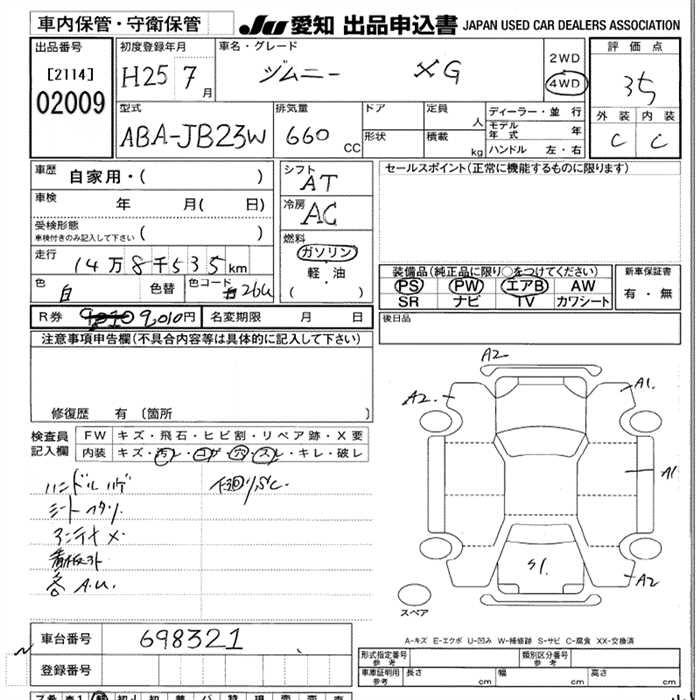 車内保管・守衛保管 JU 愛知 出品申込書 JAPAN USED CAR DEALERS ASSOCIATION
出品番号 初度登録年月 車名・グレード 2WD 評価点
[2114] H25 7月 ジムニー XG 4WD 3.5
02009
型式 排気量 ドア 定員 人 ディーラー・並行 外装 内装
ABA-JB23W 660 CC 形状 積載 kg モデル年式 年 C C
ハンドル 左・右
車歴 自家用・( ) シフト AT セールスポイント(正常に機能するものに限ります)
車検 年 月( 日) 冷房 AC
受検形態
車検付きのみ記入して下さい ( ) 燃料
走行 14万8千535km ガソリン
軽・油
( )
装備品(純正品に限り○をつけてください) 新車保証書
色 白 色替 色コード 26U PS PW エアB AW 有・無
SR ナビ TV カワシート
R券 9,010円 名変期限 月 日 後日品
注意事項申告欄(不具合内容等は具体的に記入して下さい)
修復歴 有(箇所 )
検査員記入欄 FW キズ・飛石・ヒビ割・リペア跡・X要
内装 キズ・汚レ・コゲ・穴・スレ・キレ・破レ
ハンドルハゲ 下回りSC.
アンテナX
看板外
各A.U.
A2
A2
A1
A1
S1
A2
スペア
A-キズ E-エクボ U-凹み W-補修跡 S-サビ C-腐食 XX-交換済
車台番号 698321
登録番号
形式指定番号 参考 類別区分番号 参考
車庫証明用 参考 長さ cm 幅 cm 高さ cm